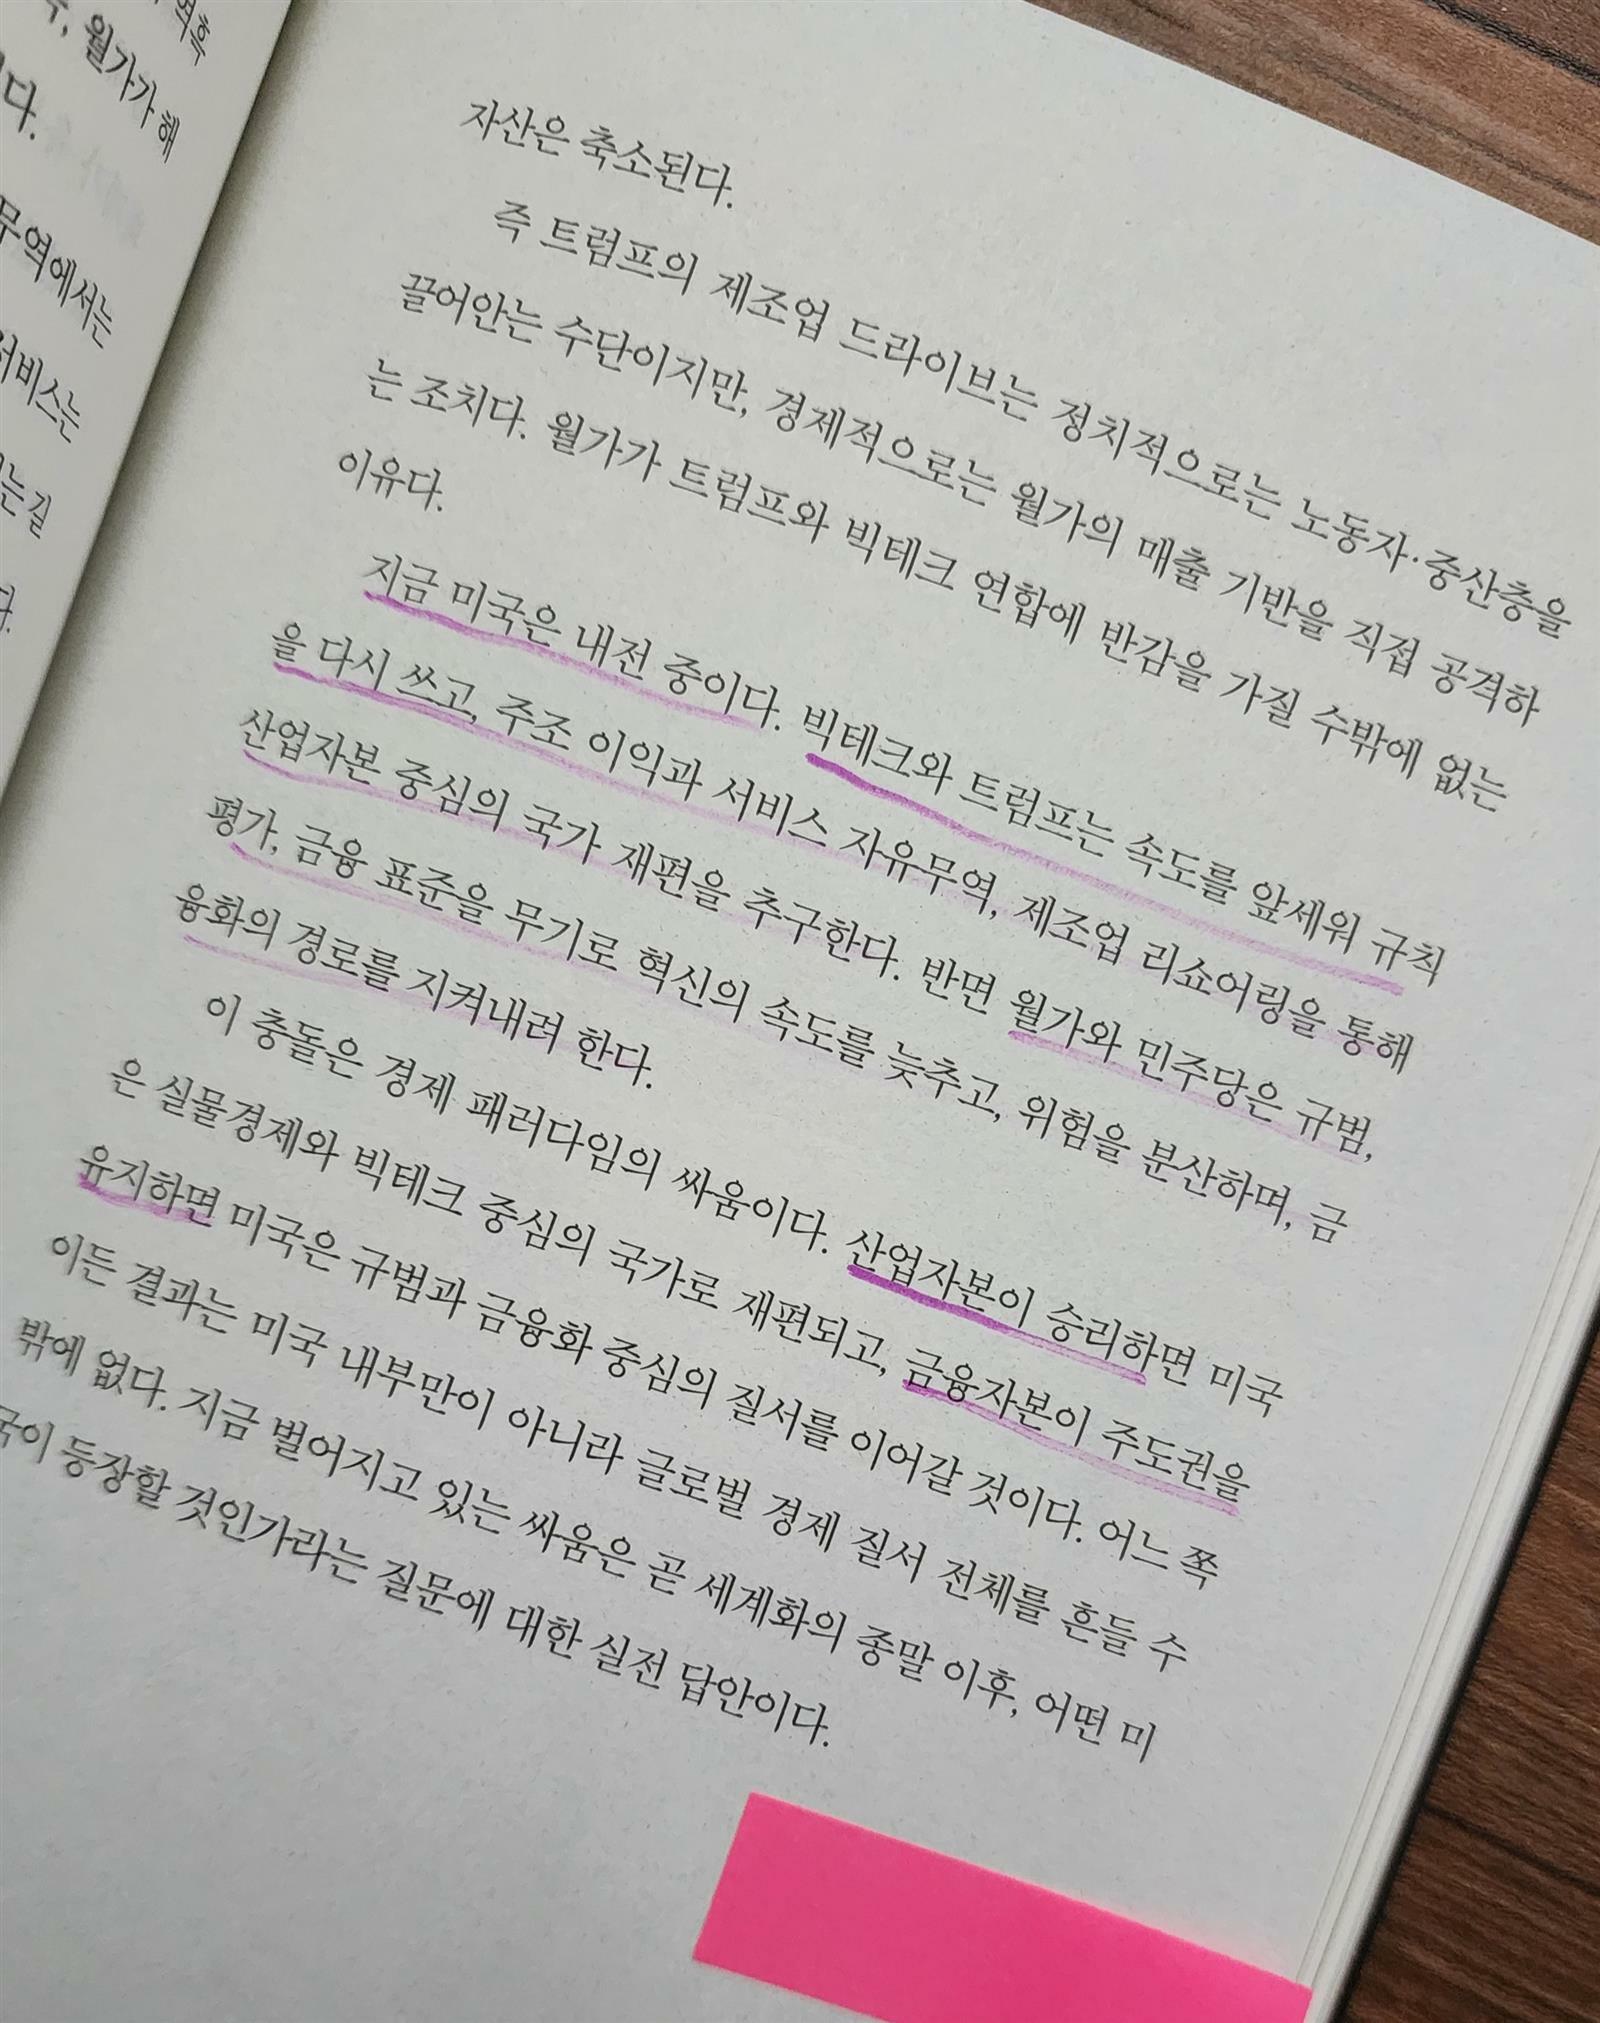 역흑
월가가 해
다.
무역에서는
서비스는
는 길
다.
자산은 축소된다.
즉 트럼프의 제조업 드라이브는 정치적으로는 노동자·중산층을
끌어안는 수단이지만, 경제적으로는 월가의 매출 기반을 직접 공격하
는 조치다. 월가가 트럼프와 빅테크 연합에 반감을 가질 수밖에 없는
이유다.
지금 미국은 내전 중이다. 빅테크와 트럼프는 속도를 앞세워 규칙
을 다시 쓰고, 주조 이익과 서비스 자유무역, 제조업 리쇼어링을 통해
산업자본 중심의 국가 재편을 추구한다. 반면 월가와 민주당은 규범,
평가, 금융 표준을 무기로 혁신의 속도를 늦추고, 위험을 분산하며, 금
융화의 경로를 지켜내려 한다.
이 충돌은 경제 패러다임의 싸움이다. 산업자본이 승리하면 미국
은 실물경제와 빅테크 중심의 국가로 재편되고, 금융자본이 주도권을
유지하면 미국은 규범과 금융화 중심의 질서를 이어갈 것이다. 어느 쪽
이든 결과는 미국 내부만이 아니라 글로벌 경제 질서 전체를 흔들 수
밖에 없다. 지금 벌어지고 있는 싸움은 곧 세계화의 종말 이후, 어떤 미
국이 등장할 것인가라는 질문에 대한 실전 답안이다.